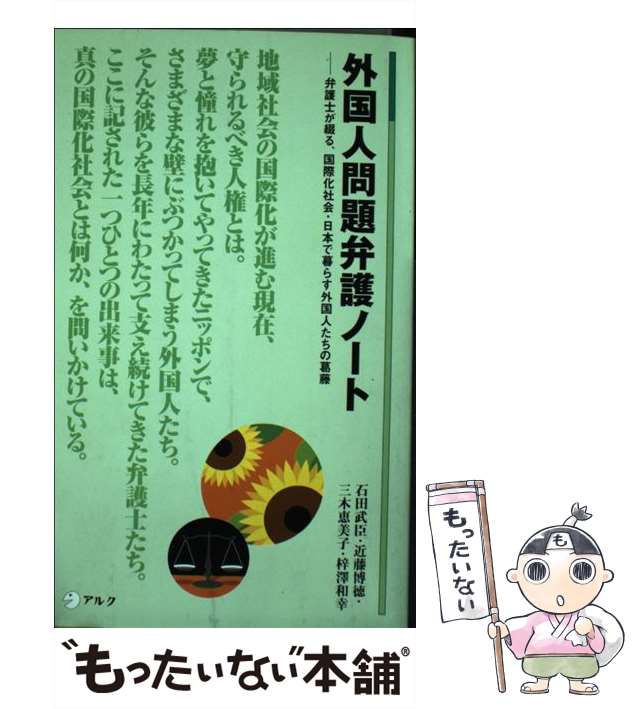 外国人問題弁護ノート
──弁護士が綴る、国際化社会・日本で暮らす外国人たちの葛藤
地域社会の国際化が進む現在、
守られるべき人権とは。
夢と憧れを抱いてやってきたニッポンで、
さまざまな壁にぶつかってしまう外国人たち。
そんな彼らを長年にわたって支え続けてきた弁護士たち。
ここに記された一つひとつの出来事は、
真の国際化社会とは何か、を問いかけている。
石田武臣・近藤博徳・
三木恵美子・梓澤和幸
アルク
もったいない
"もったいない"本舗®